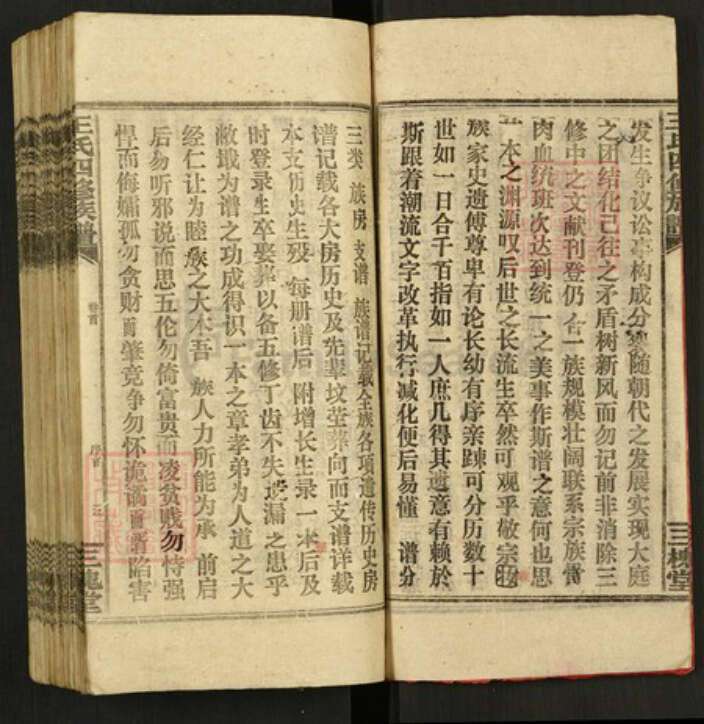 王氏四修族譜
三槐堂
发生争议讼事构成分裂随朝代之发展实现大庭
之团结化己往之矛盾树新风而勿记前非消除三
修中之文献刊登仍合一族规模壮阔联系宗族
肉血统班次达到统一之美事作斯谱之意何也思
本之渊源叹后世之长流生卒然可观乎敬宗
族家史遗傳尊卑有论长幼有序亲踈可分历数十
世如一日合千百指如一人庶几得其遗意有赖於
斯跟着潮流文字改革执行减化便后易懂 谱分
三类 族房 支谱 族谱记载全族各項遗传历史房
谱记载各大房历史及先辈坟茔葬向而支谱详载
本支历史生殁 每册谱后 附增长生录一本后及
时登录生卒娶葬以备五修丁齿不失遗漏之患乎
敝哦为谱之功成得识一本之章孝弟为人道之大
经仁让为睦族之大本吾 族人力所能为承 前启
后勿听邪说而思五伦勿倚富贵而凌贫贱勿恃强
悍而侮孀孤勿贪财而肇竞争勿怀诡谲而阱陷害
王氏四修族譜
卷首
序言
三槐堂